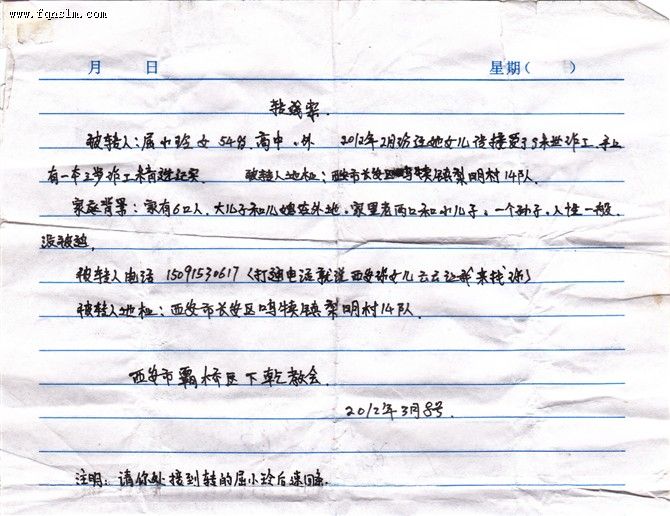 www.fqnslm.com
月 日 星期( )
转线案
被转人:屈小玲 女 54岁 高中。外 2012年2月 她女儿传 接受 作工 手上
有一本 作工 被转人地址:西安市长安区鸣犊镇梨明村14队.
家庭背景:家有6口人,大儿子和儿媳在外地,家里老两口和小儿子,一个孙子,人性一般,
没被
被转人电话 15091530617(打通电话就说西安你女儿云云让我来找你)
被转人地址:西安市长安区鸣犊镇梨明村14队.
西安市霸桥区下乾教会.
2012年3月8号.
注明:请你处接到转的屈小玲后速回条.